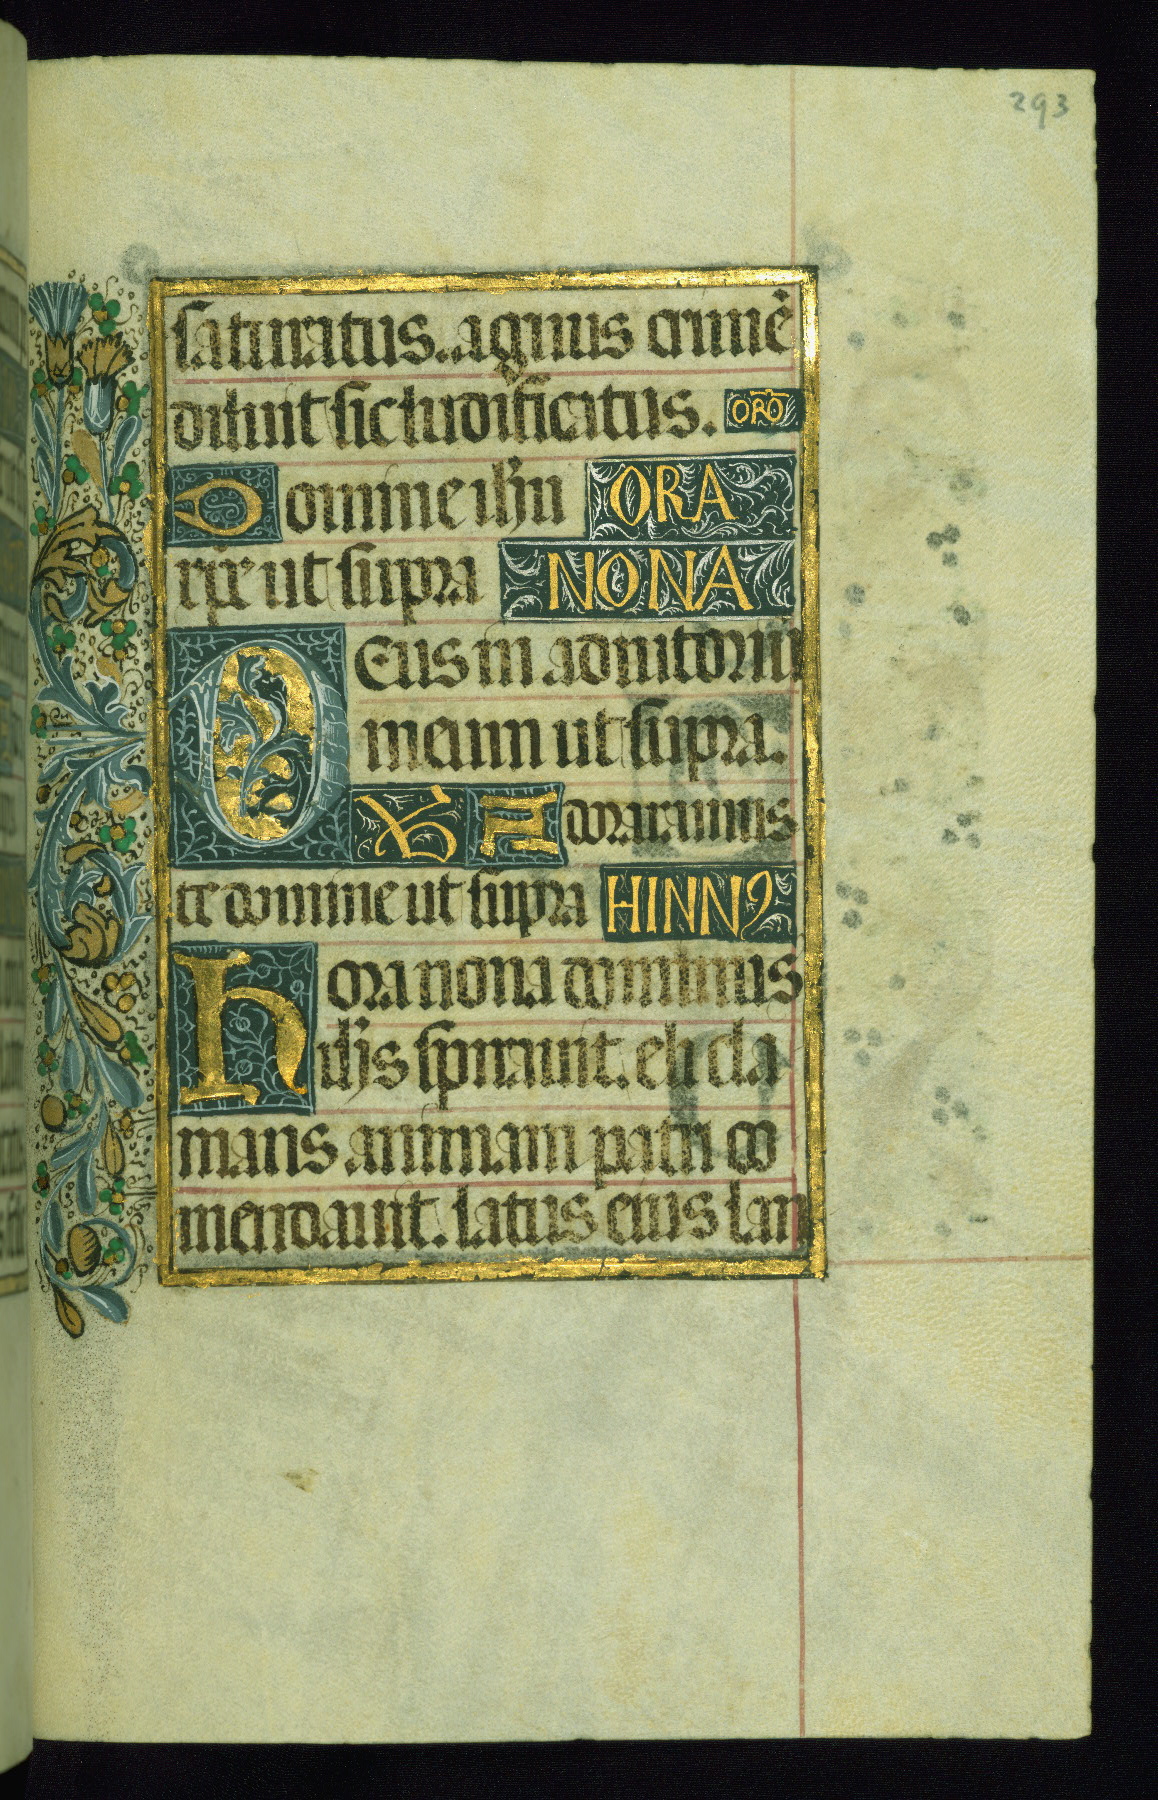 293
saturatus. agnus crimē
diluit sic ludificatus. orō
Domine ihu ORA
xp̄e ut supra NONA
DEus in adiutoriū
meum ut supra.
Adoramus
te domine ut supra HINNꝰ
Hora nona dominus
ihs spirauit. eli cla
mans animam patri co
mendauit. latus eius lan